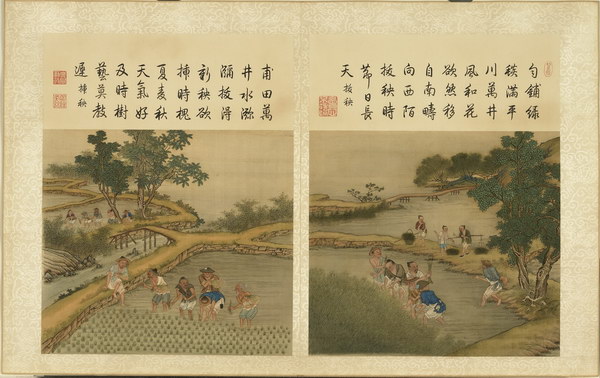 勻鋪綠
滿平
川萬井
風和花
欲然移
自南疇
向西陌
拔秧時
節日長
天 拔秧
甫田萬
井水瀰
瀰拔得
新秧欲
插時槐
夏麥秋
天氣好
及時樹
藝莫教
遲 插秧